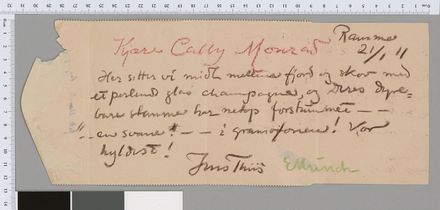 Ramme
21/1 11
Kjære Cally Monrad
Her sitter vi midt mellem fjord og skov med
et perlende glas champagne, og Deres dyre-
bare stemme har netop forstummet - -
"en svane" - - i gramofonen! Vor
hyldest!
Jens Thiis EMunch